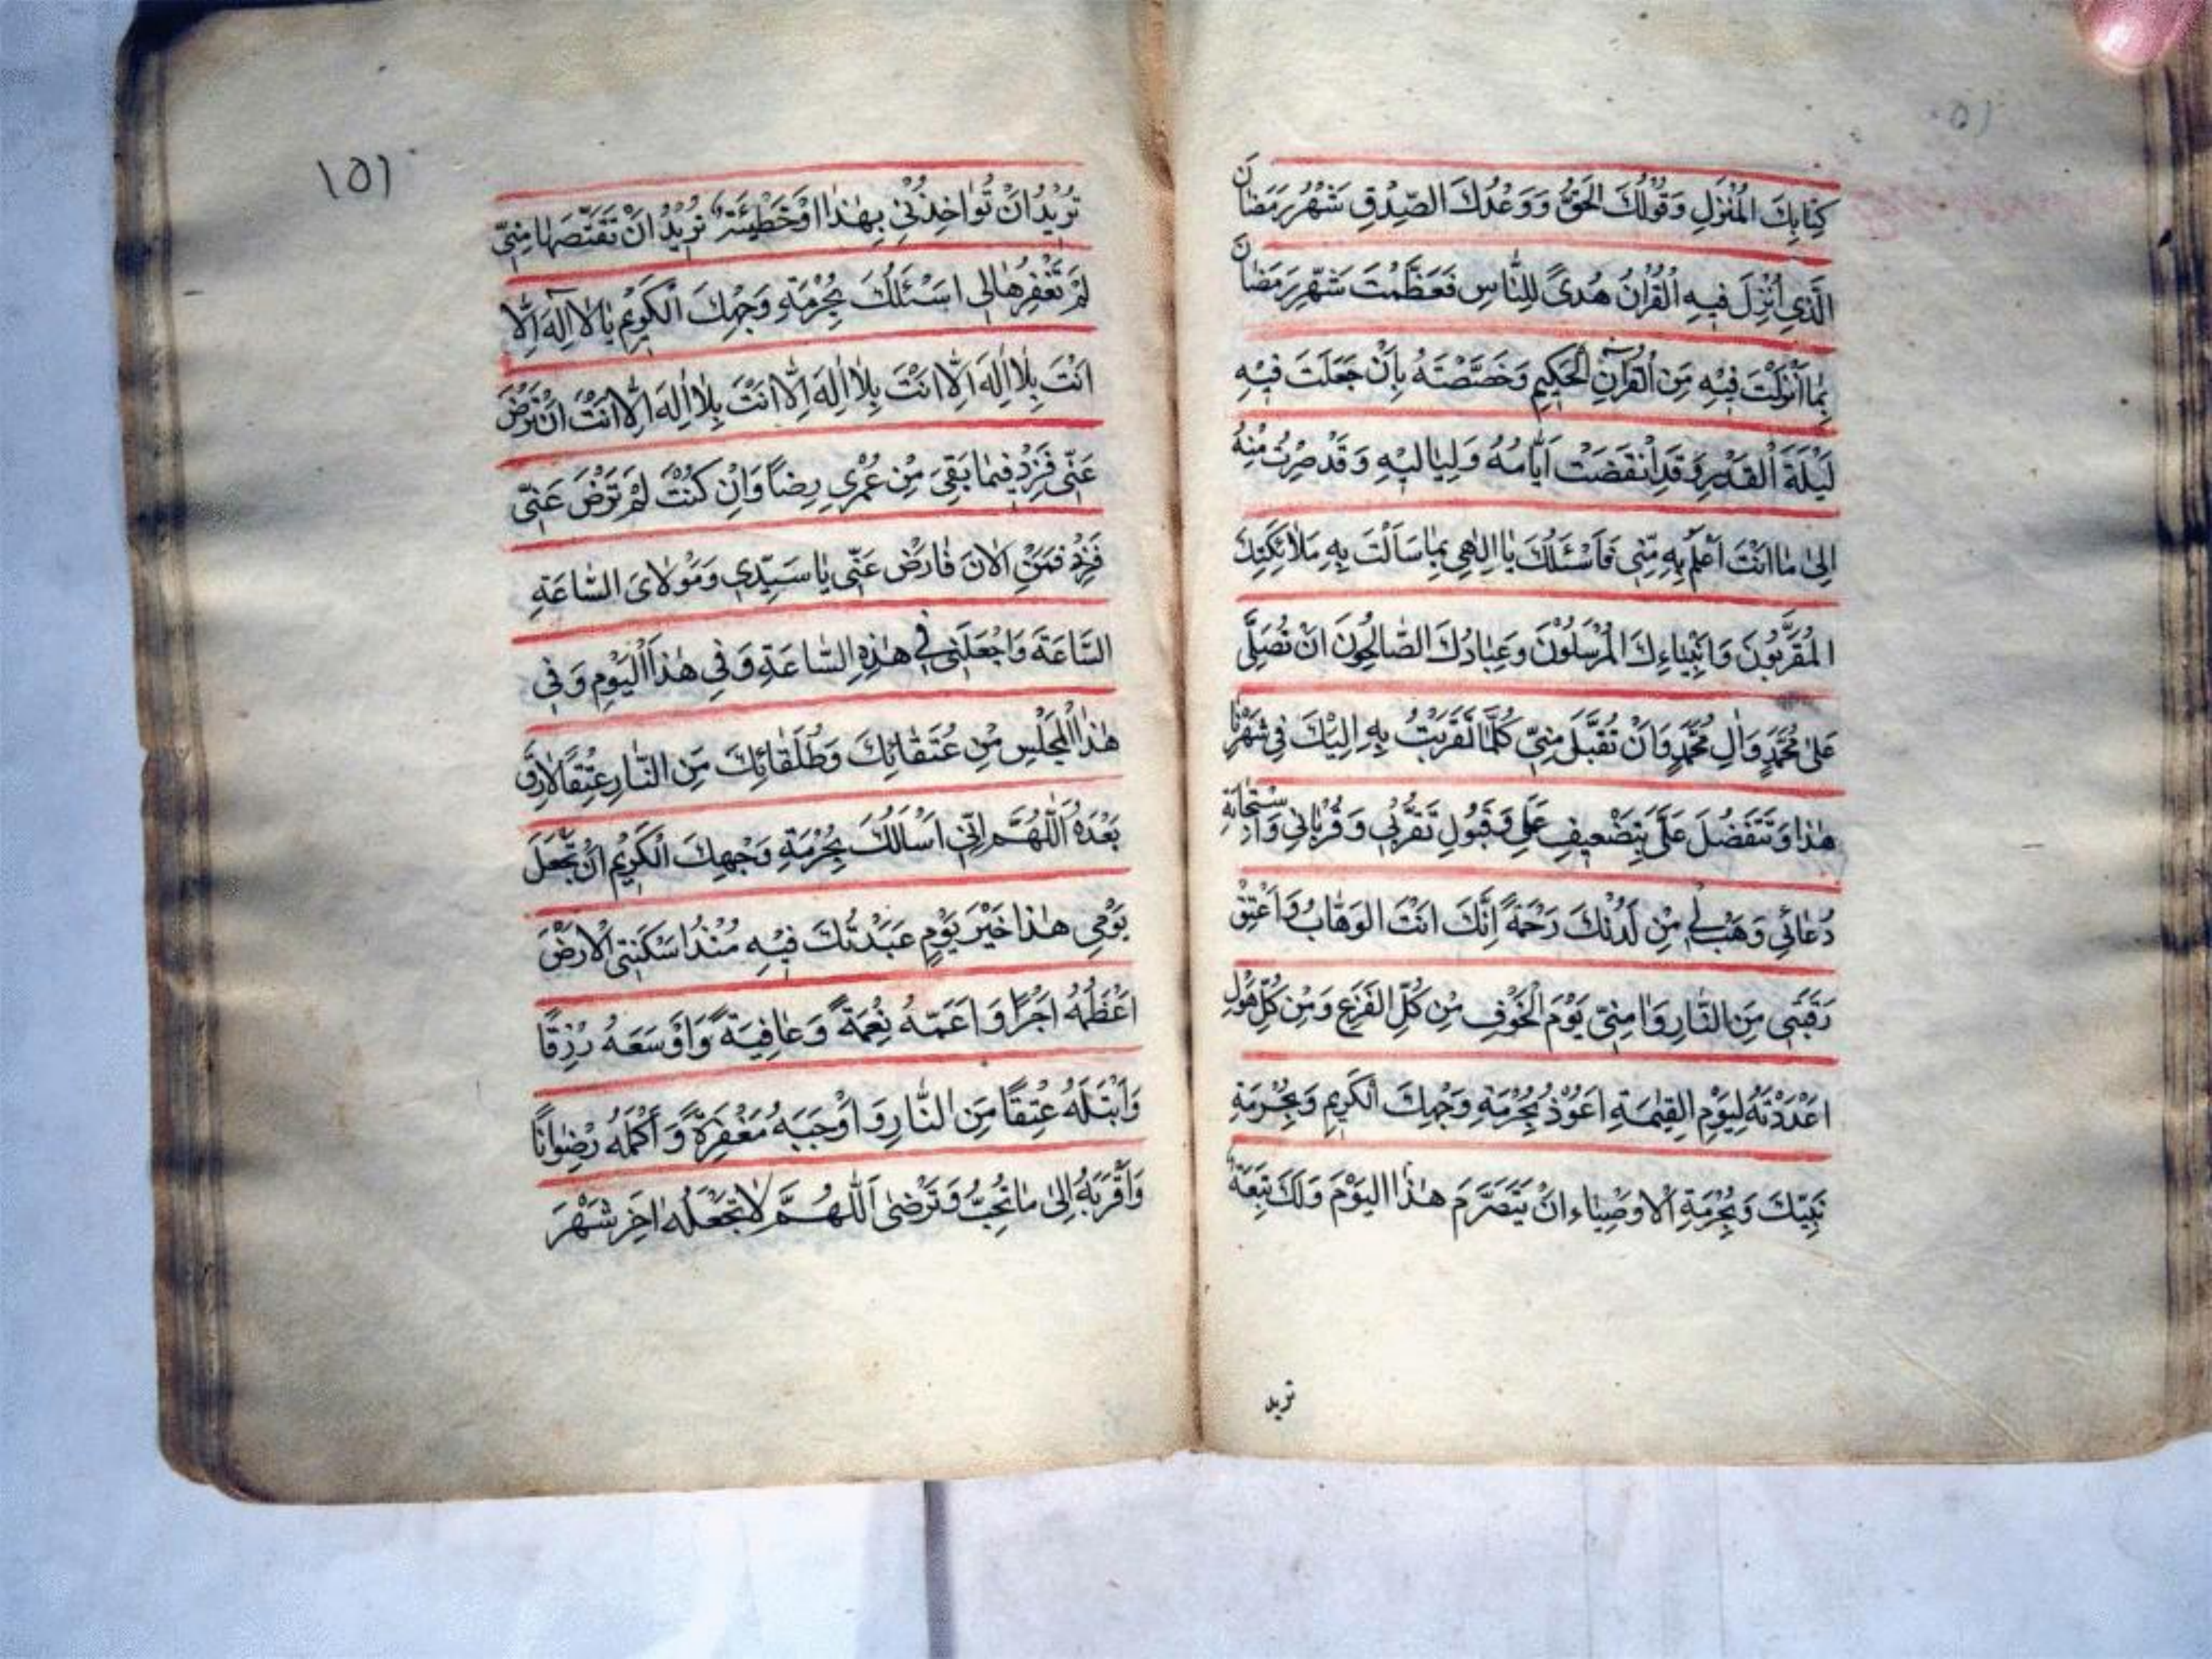 كِتَابِكَ الْمُنْزَلِ وَقَوْلُكَ الْحَقُّ وَوَعْدُكَ الصِّدْقِ شَهْرُ رَمَضَانَ
الَّذِي أُنْزِلَ فِيهِ الْقُرْانُ هُدىً لِلنَّاسِ فَعَظَّمْتَ شَهْرَ رَمَضَانَ
بِمَا أَنْزَلْتَ فِيْهِ مِنَ الْقُرْآنِ الْحَكِيمِ وَخَصَّصْتَهُ بِاَنْ جَعَلْتَ فِيْهِ
لَيْلَةَ الْقَدْرِ وَقَدِ انْقَضَتْ اَيَّامُهُ وَلَيَالِيْهِ وَقَدْ صِرْتُ مِنْهُ
اِلىٰ مَا اَنْتَ اَعْلَمُ بِهِ مِنِّي فَاَسْئَلُكَ يَا اِلٰهِي بِمَا سَاَلَتْ بِهِ مَلَائِكَتِكَ
الْمُقَرَّبُونَ وَاَنْبِيَاءِكَ الْمُرْسَلُوْنَ وَعِبَادُكَ الصَّالِحُونَ اَنْ تُصَلِّىَ
عَلىٰ مُحَمَّدٍ وَالِ مُحَمَّدٍ وَاَنْ تُقَبَّلَ مِنِّيْ كُلَّمَا تَقَرَّبْتُ بِهِ اِلَيْكَ فِي شَهْرِنَا
هٰذَا وَتَتَفَضَّلَ عَلَيَّ بِتَضْعِيفِ عَمَلِي وَقَبُولِ تَقَرُّبِي وَقُرْبَانِي وَاسْتِجَابَةِ
دُعَائِي وَهَبْ لِي مِنْ لَدُنْكَ رَحْمَةً اِنَّكَ اَنْتَ الْوَهَّابُ وَاَعْتِقْ
رَقَبَتِي مِنَ النَّارِ وَاٰمِنِّيْ يَوْمَ الْخَوْفِ مِنْ كُلِّ الْفَزَعِ وَمِنْ كُلِّ هَوْلٍ
اَعْدَدْتَهُ لِيَوْمِ الْقِيٰمَةِ اَعُوْذُ بِحُرْمَةِ وَجْهِكَ الْكَرِيمِ وَبِحُرْمَةِ
نَبِيِّكَ وَبِحُرْمَةِ الْاَوْصِيَاءِ اَنْ يَتَصَرَّمَ هٰذَا الْيَوْمَ وَلَكَ تَبِعَةٌ
تريد
١٥١
تُرِيْدُ اَنْ تُوَاخِذُنِيْ بِهٰذَا اَوْ خَطْيِئَةٌ تُرِيْدُ اَنْ تَقْتَصَّهَا مِنِّي
لَمْ تَغْفِرْهَا لِي اَسْئَلُكَ بِحُرْمَةِ وَجْهِكَ الْكَرِيْمِ يَا لَا اِلٰهَ اِلَّا
اَنْتَ بِلَا اِلٰهَ اِلَّا اَنْتَ بِلَا اِلٰهَ اِلَّا اَنْتَ بِلَا اِلٰهَ اِلَّا اَنْتَ اَنْ تَرْضَ
عَنِّي فَزِدْ فِيْمَا بَقِيَ مِنْ عُمْرِي رِضاً وَاِنْ كُنْتَ لَمْ تَرْضَ عَنِّي
فَزِدْ فَمِنَ الْاٰنَ فَارْضَ عَنِّي يَا سَيِّدِي وَمَوْلَايَ السَّاعَةِ
السَّاعَةَ وَاجْعَلْنِي فِي هٰذِهِ السَّاعَةِ وَفِي هٰذَا الْيَوْمِ وَفِي
هٰذَا الْمَجْلِسِ مِنْ عُتَقَائِكَ وَطُلَقَائِكَ مِنَ النَّارِ عِتْقاً لَا رِقَّ
بَعْدَهُ اَللّٰهُمَّ اِنِّي اَسْاَلُكَ بِحُرْمَةِ وَجْهِكَ الْكَرِيْمِ اَنْ تَجْعَلَ
يَوْمِي هٰذَا خَيْرَ يَوْمٍ عَبَدْتُكَ فِيْهِ مُنْذُ اَسْكَنْتَنِي الْاَرْضَ
اَعْظَمُهُ اَجْرًا وَاَعَمَّهُ نِعْمَةً وَعَافِيَةً وَاَوْسَعَهُ رِزْقًا
وَابْتَلَهُ عِتْقًا مِنَ النَّارِ وَاَوْجَبَهُ مَغْفِرَةً وَاَكْمَلَهُ رِضْوَانًا
وَاَقْرَبَهُ اِلىٰ مَا تُحِبُّ وَتَرْضىٰ اَللّٰهُمَّ لَا تَجْعَلْهُ اٰخِرَ شَهْرَ